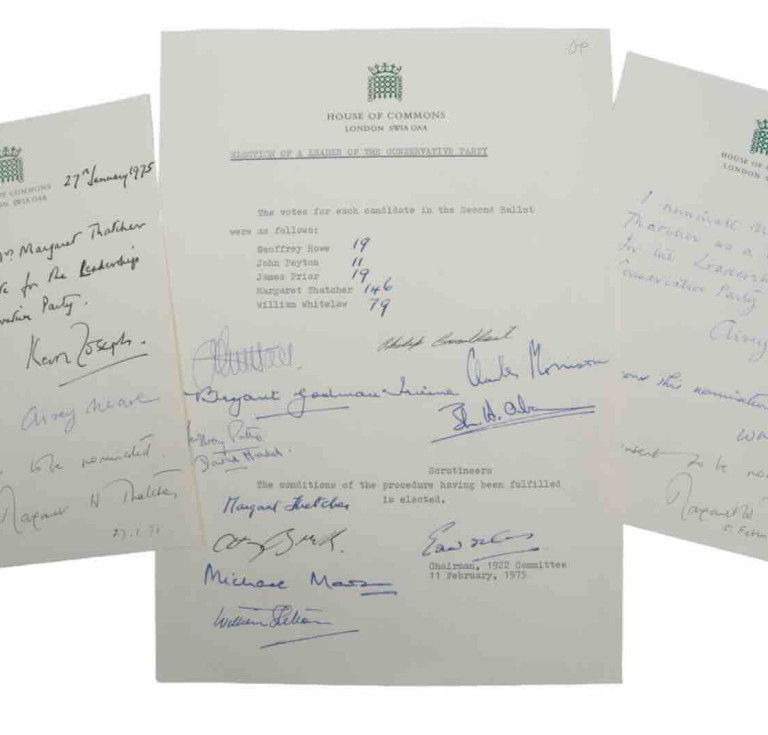 COMMONS
SW1A OAA
27th January 1975
Mrs Margaret Thatcher
for the Leadership
Party.
Keith Joseph.
Airey Neave
to be nominated.
Margaret H Thatcher
27.1.75
OP
HOUSE OF COMMONS
LONDON SW1A OAA
ELECTION OF A LEADER OF THE CONSERVATIVE PARTY
The votes for each candidate in the Second Ballot
were as follows:
Geoffrey Howe 19
John Peyton 11
James Prior 19
Margaret Thatcher 146
William Whitelaw 79
Philip Goodhart
Charles Morrison
Bryant Godman Irvine
David Howell
Scrutineers
The conditions of the procedure having been fulfilled
Margaret Thatcher is elected.
Chairman, 1922 Committee
11 February, 1975
Michael
William
HOUSE OF
LONDON
I nominate
Thatcher as a
for the Leadership
Conservative Party
Airey
this nomination
to be
Margaret H